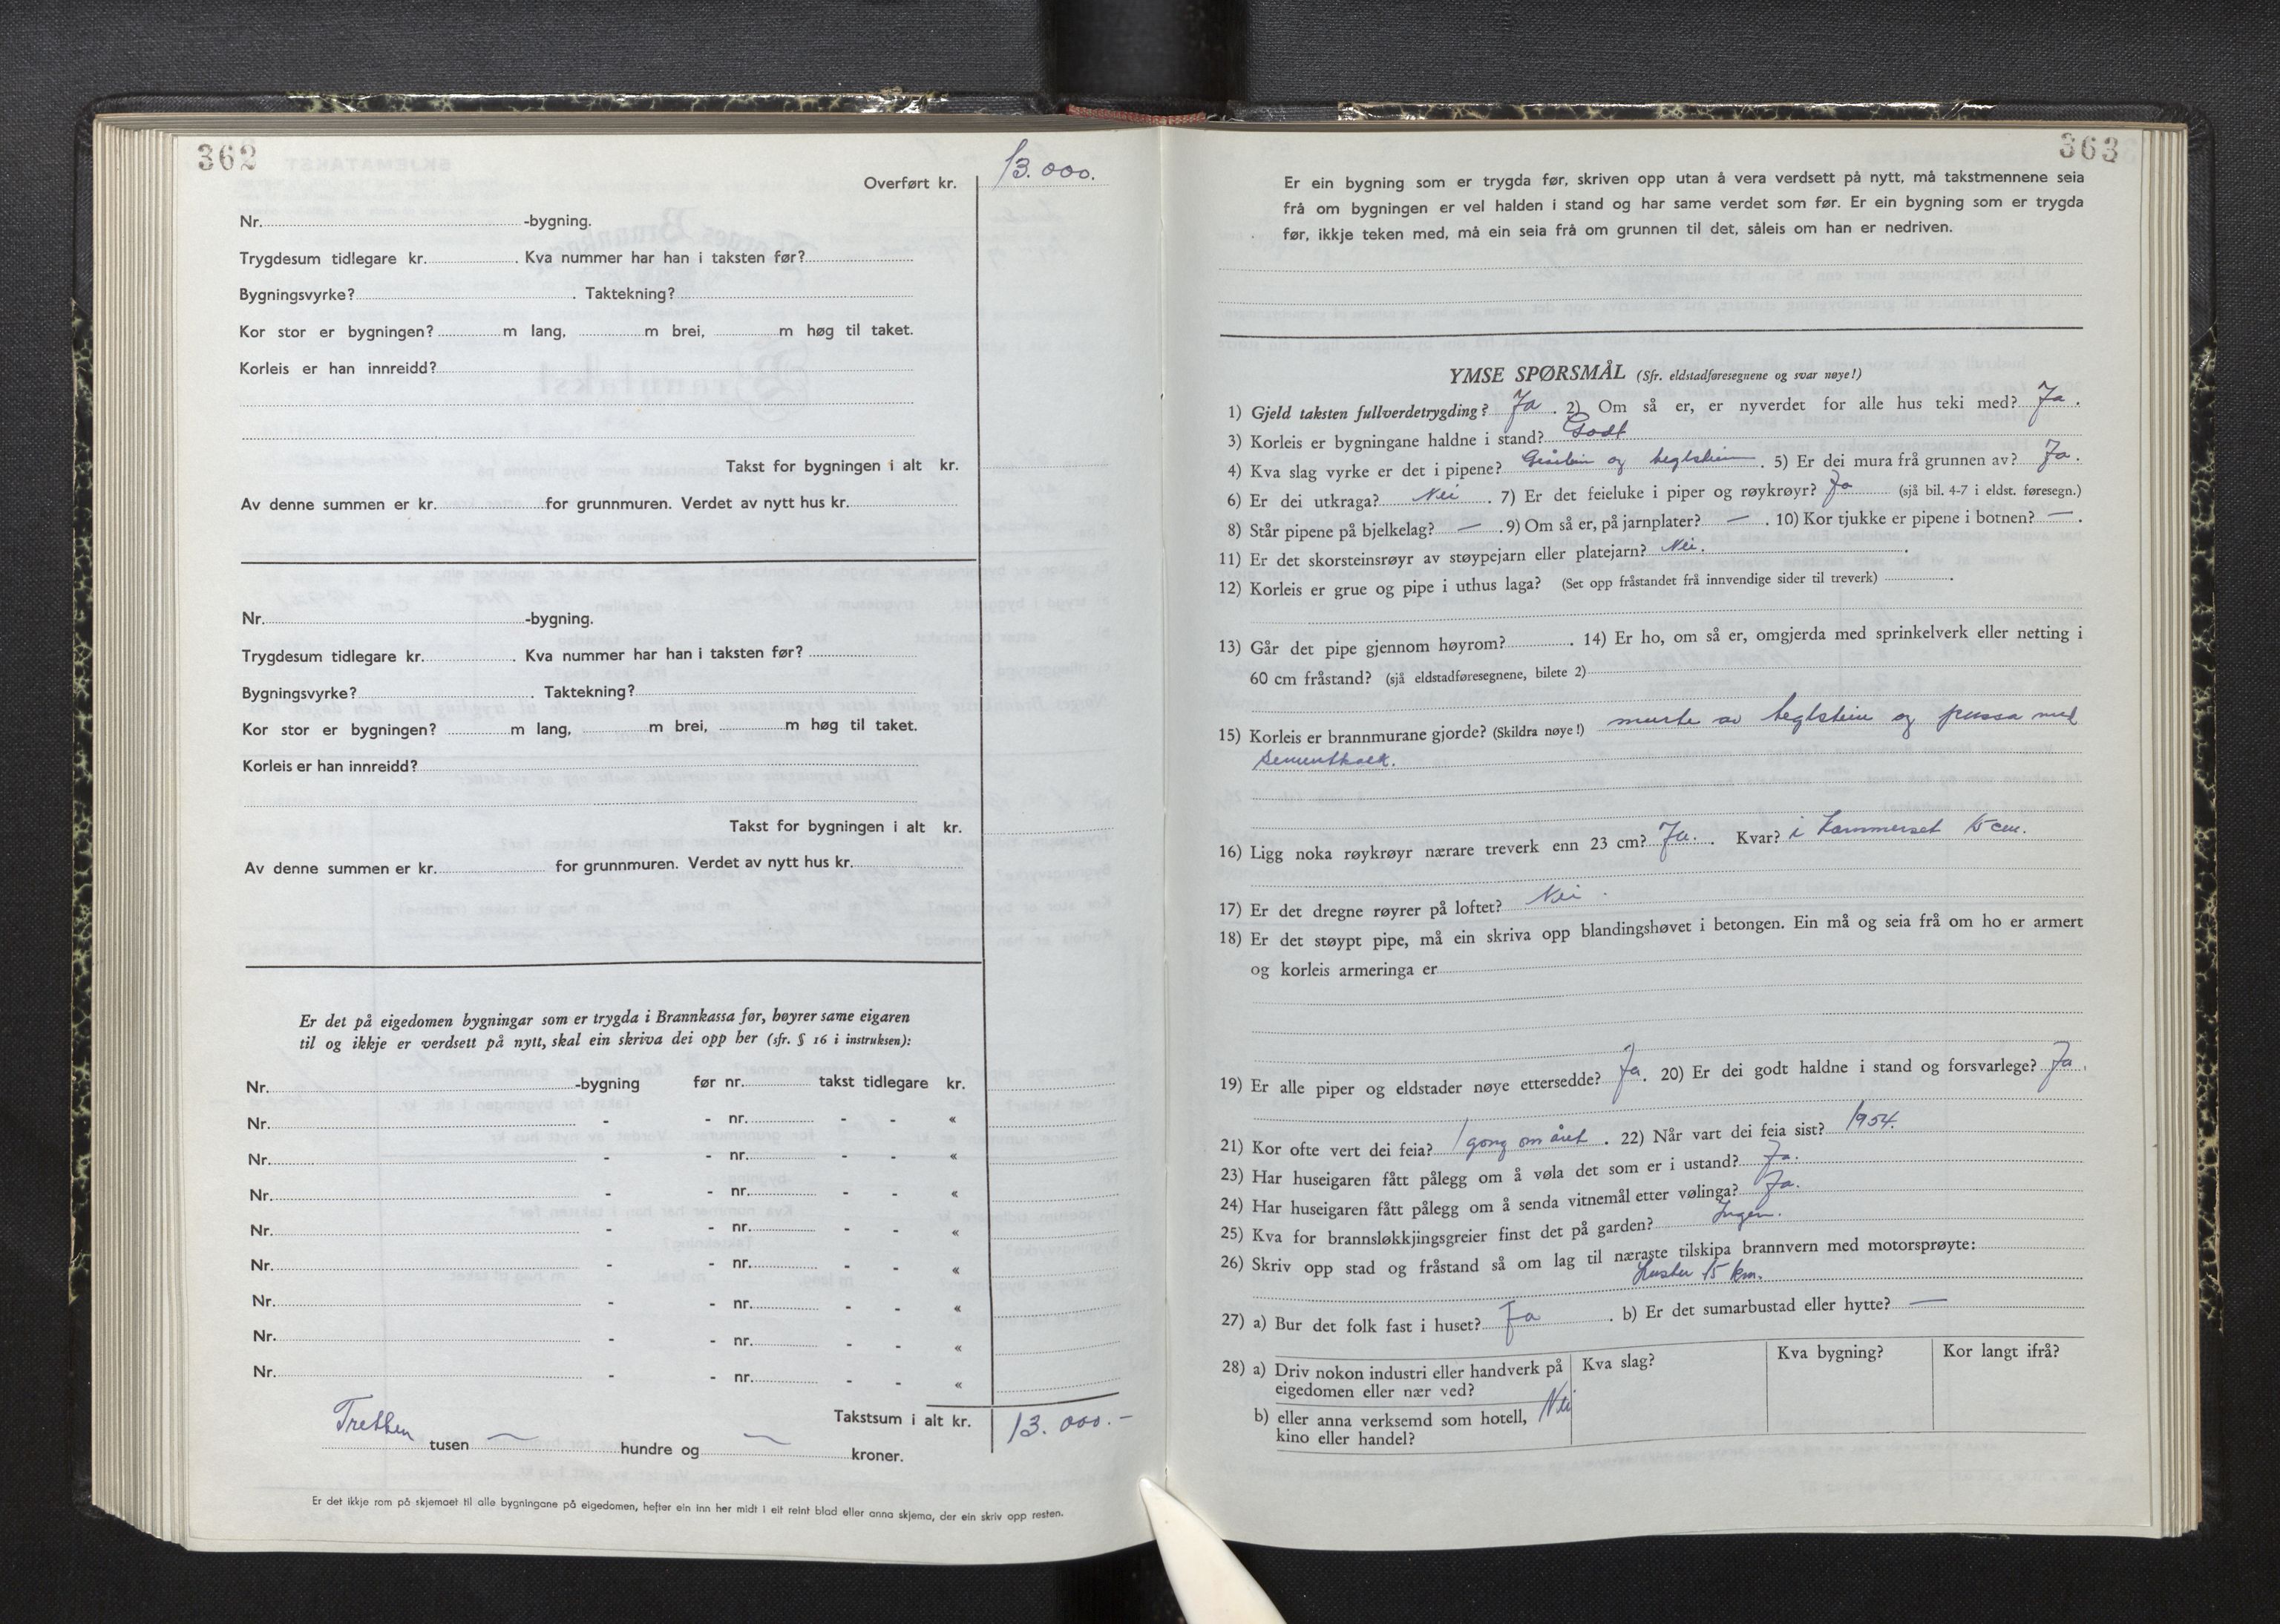 362
Overført kr. 13.000.
Nr. -bygning.
Trygdesum tidlegare kr. . Kva nummer har han i taksten før?
Bygningsvyrke? . Taktekning?
Kor stor er bygningen? m lang, m brei, m høg til taket.
Korleis er han innreidd?
Takst for bygningen i alt kr.
Av denne summen er kr. for grunnmuren. Verdet av nytt hus kr.
Nr. -bygning.
Trygdesum tidlegare kr. . Kva nummer har han i taksten før?
Bygningsvyrke? . Taktekning?
Kor stor er bygningen? m lang, m brei, m høg til taket.
Korleis er han innreidd?
Takst for bygningen i alt kr.
Av denne summen er kr. for grunnmuren. Verdet av nytt hus kr.
Er det på eigedomen bygningar som er trygda i Brannkassa før, høyrer same eigaren
til og ikkje er verdsett på nytt, skal ein skriva dei opp her (sfr. § 16 i instruksen):
Nr. -bygning før nr. takst tidlegare kr.
Nr. - - nr. - - «
Nr. - - nr. - - «
Nr. - - nr. - - «
Nr. - - nr. - - «
Nr. - - nr. - - «
Nr. - - nr. - - «
Nr. - - nr. - - «
Nr. - - nr. - - «
Takstsum i alt kr. 13.000.-
Tretten tusen — hundre og — kroner.
Er det ikkje rom på skjemaet til alle bygningane på eigedomen, hefter ein inn her midt i eit reint blad eller anna skjema, der ein skriv opp resten.
363
Er ein bygning som er trygda før, skriven opp utan å vera verdsett på nytt, må takstmennene seia
frå om bygningen er vel halden i stand og har same verdet som før. Er ein bygning som er trygda
før, ikkje teken med, må ein seia frå om grunnen til det, såleis om han er nedriven.
YMSE SPØRSMÅL (Sfr. eldstadføresegnene og svar nøye!)
1) Gjeld taksten fullverdetrygding? Ja . 2) Om så er, er nyverdet for alle hus teki med? Ja .
3) Korleis er bygningane haldne i stand? Godt
4) Kva slag vyrke er det i pipene? Gråstein og teglstein . 5) Er dei mura frå grunnen av? Ja .
6) Er dei utkraga? Nei . 7) Er det feieluke i piper og røykrøyr? Ja (sjå bil. 4-7 i eldst. føresegn.)
8) Står pipene på bjelkelag? — . 9) Om så er, på jarnplater? — . 10) Kor tjukke er pipene i botnen? — .
11) Er det skorsteinsrøyr av støypejarn eller platejarn? Nei. .
12) Korleis er grue og pipe i uthus laga? (Set opp fråstandet frå innvendige sider til treverk) .
13) Går det pipe gjennom høyrom? . 14) Er ho, om så er, omgjerda med sprinkelverk eller netting i
60 cm fråstand? (sjå eldstadføresegnene, bilete 2)
15) Korleis er brannmurane gjorde? (Skildra nøye!) murte av teglstein og pussa med
sementkalk.
16) Ligg noka røykrøyr nærare treverk enn 23 cm? Ja. . Kvar? i kammerset 15 cm.
17) Er det dregne røyrer på loftet? Nei .
18) Er det støypt pipe, må ein skriva opp blandingshøvet i betongen. Ein må og seia frå om ho er armert
og korleis armeringa er
19) Er alle piper og eldstader nøye ettersedde? Ja . 20) Er dei godt haldne i stand og forsvarlege? Ja .
21) Kor ofte vert dei feia? 1 gong om året . 22) Når vart dei feia sist? 1954.
23) Har huseigaren fått pålegg om å vøla det som er i ustand? Ja.
24) Har huseigaren fått pålegg om å senda vitnemål etter vølinga? Ja.
25) Kva for brannsløkkjingsgreier finst det på garden? Ingen.
26) Skriv opp stad og fråstand så om lag til næraste tilskipa brannvern med motorsprøyte:
Luster 15 km.
27) a) Bur det folk fast i huset? Ja . b) Er det sumarbustad eller hytte? —
28) a) Driv nokon industri eller handverk på Kva slag? Kva bygning? Kor langt ifrå?
eigedomen eller nær ved?
b) eller anna verksemd som hotell, Nei
kino eller handel?